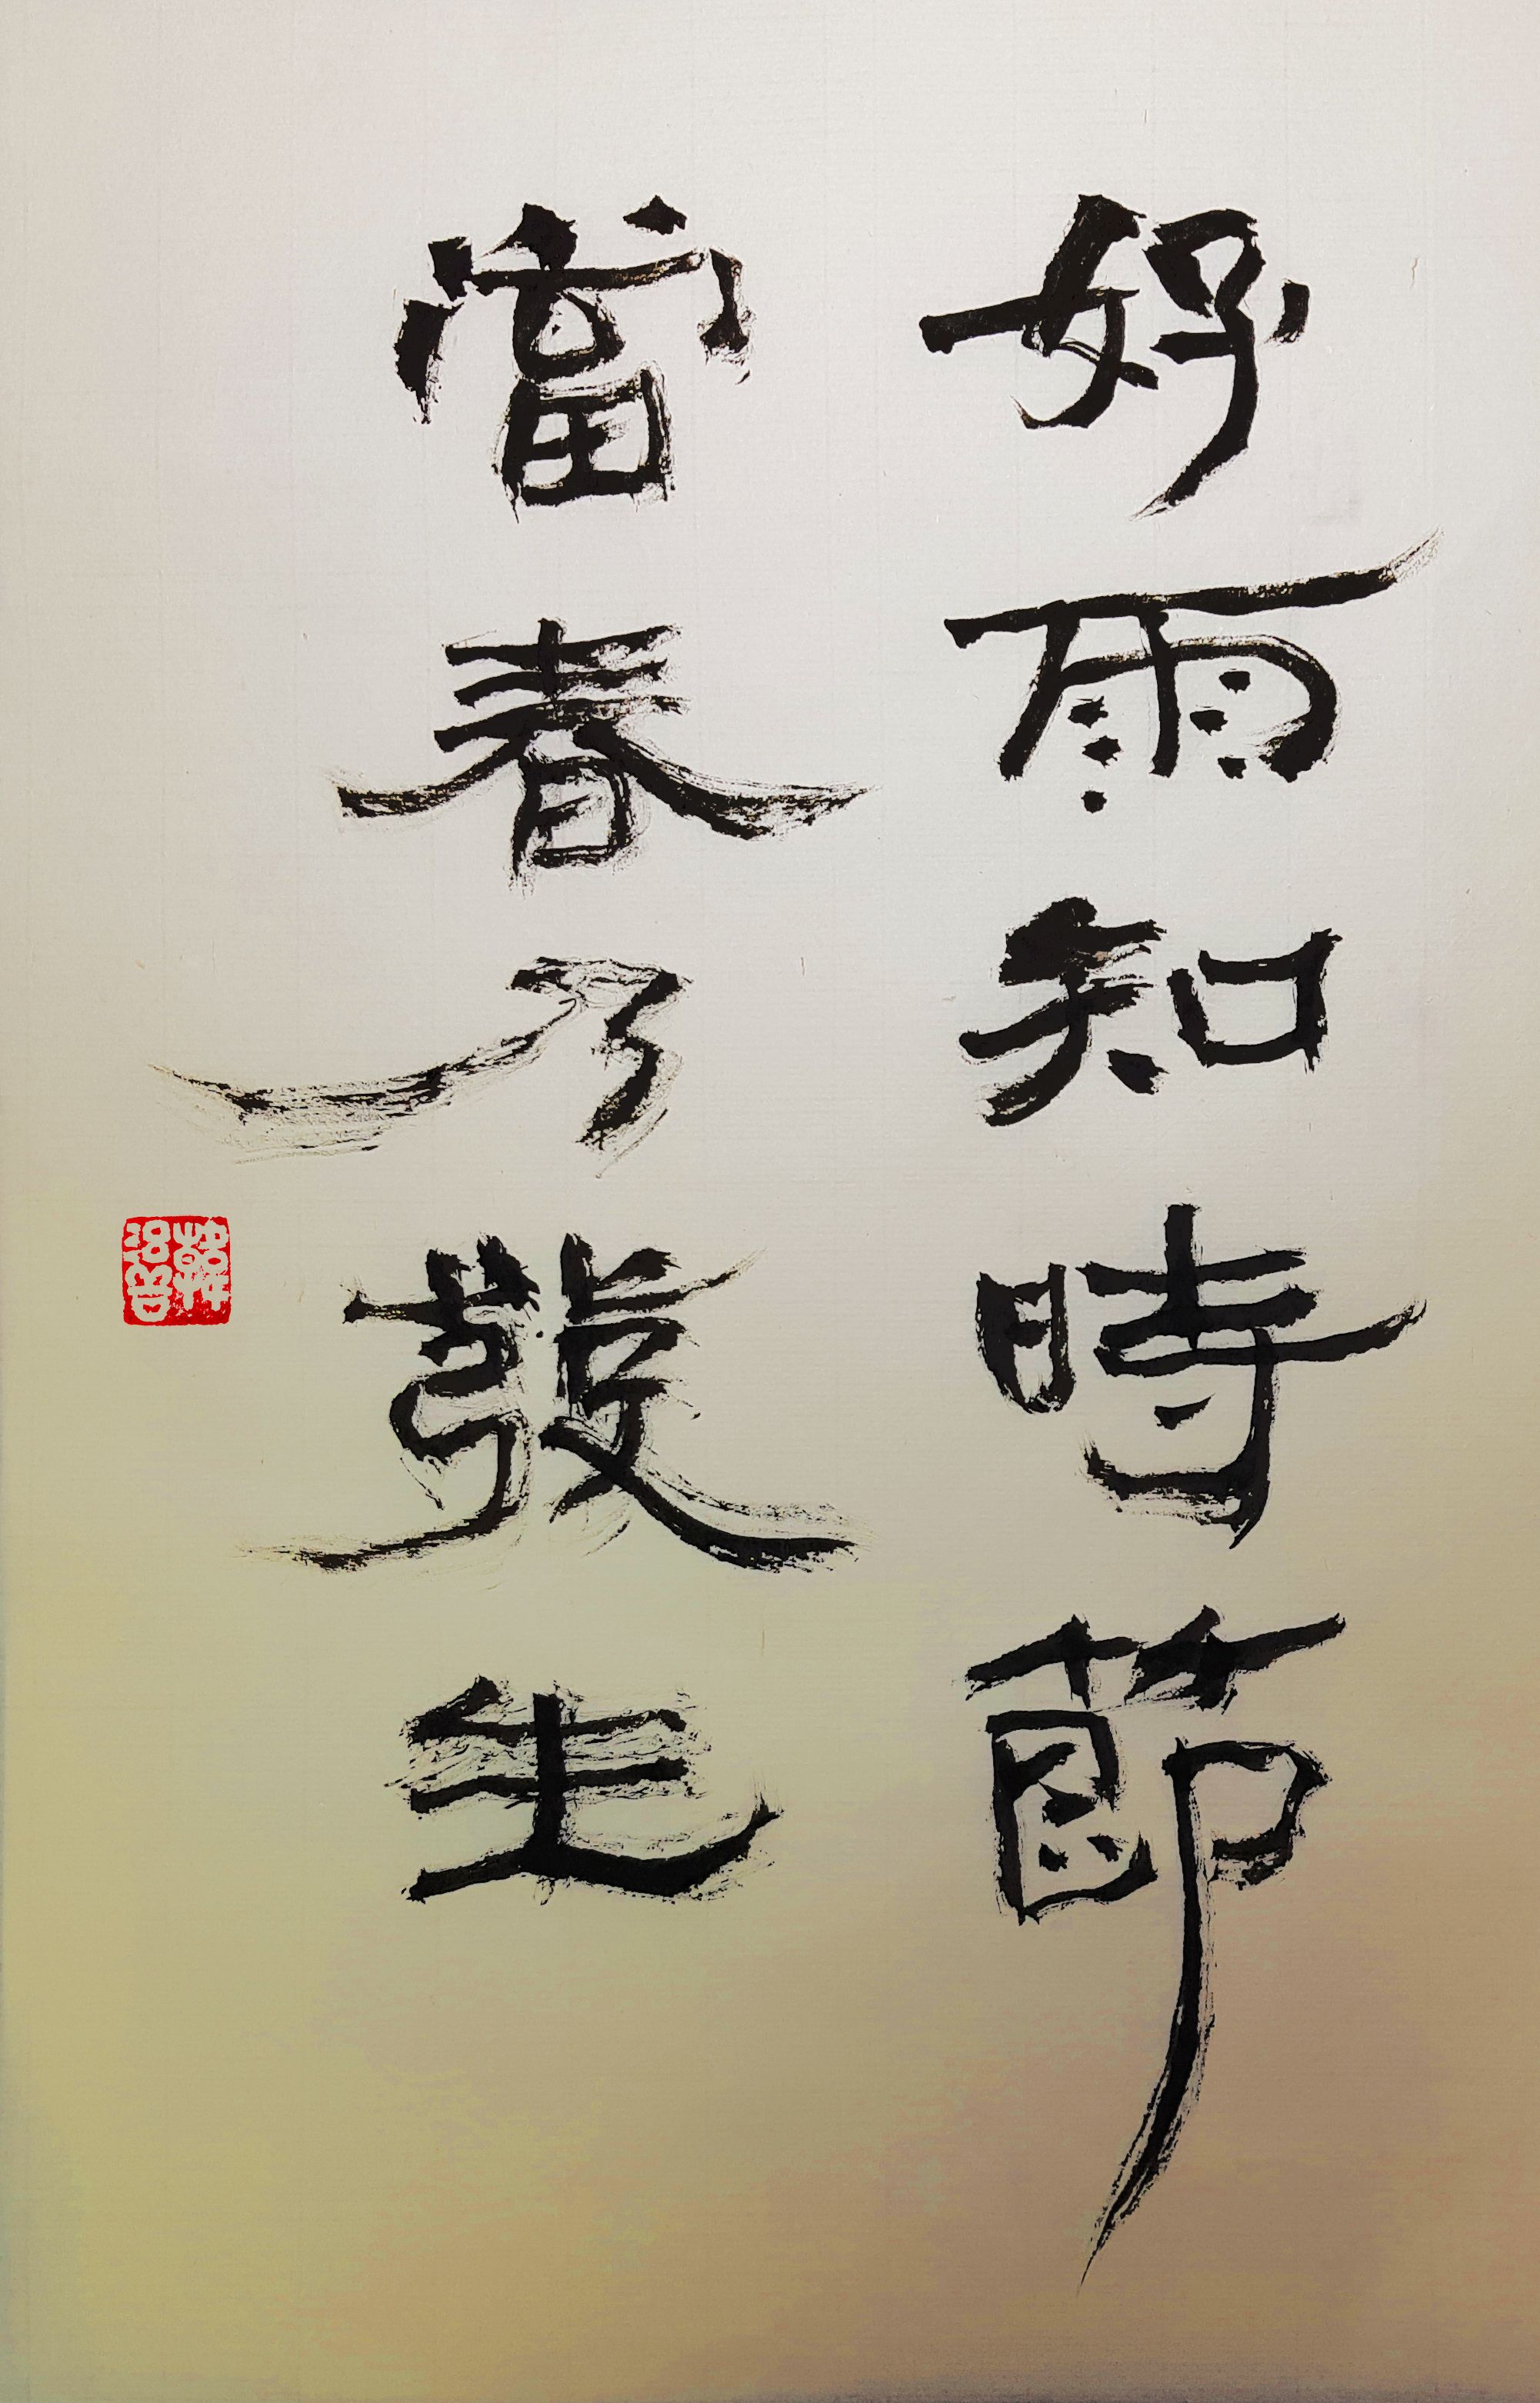 好雨知時節
當春乃發生